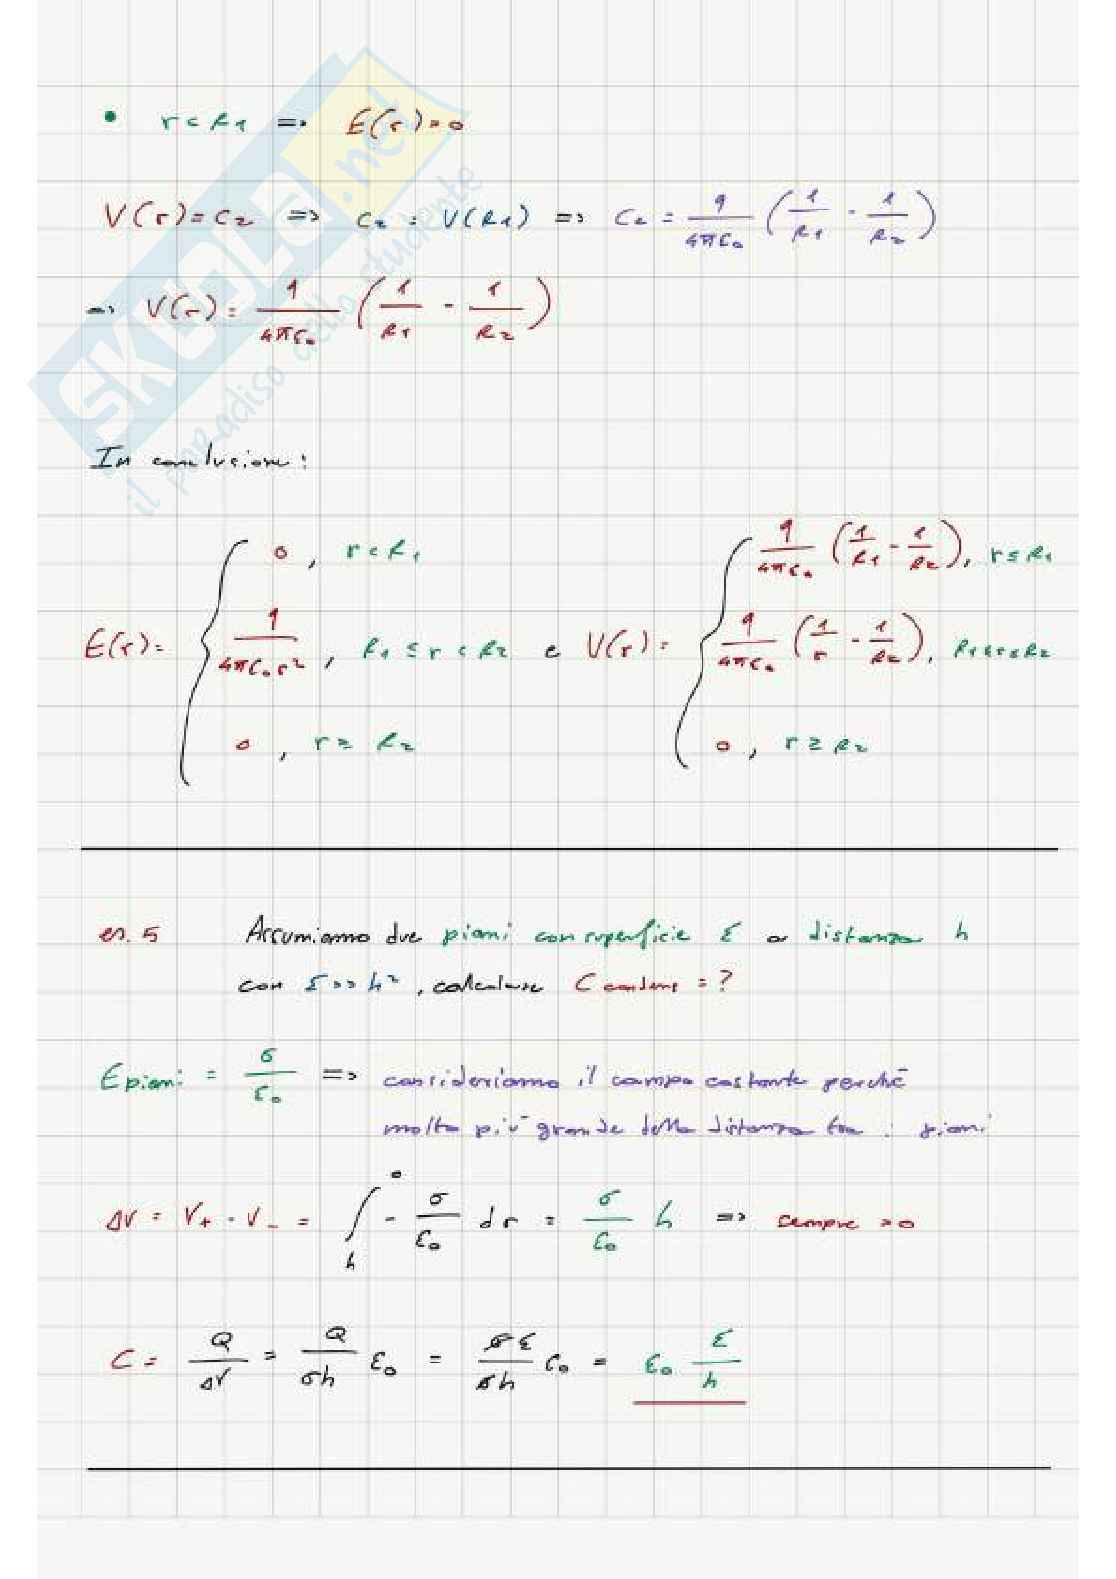 • r < R₁ => E(r) = 0
V(r) = C₂ => C₂ = V(R₁) => C₂ = q/(4πε₀) (1/R₁ - 1/R₂)
=> V(r) = q/(4πε₀) (1/R₁ - 1/R₂)
In conclusione:
E(r) = { 0, r < R₁
q/(4πε₀r²), R₁ ≤ r < R₂
0, r ≥ R₂
e V(r) = { q/(4πε₀) (1/R₁ - 1/R₂), r ≤ R₁
q/(4πε₀) (1/r - 1/R₂), R₁<r≤R₂
0, r ≥ R₂
es. 5 Assumiamo due piani con superficie Σ a distanza h
con Σ >> h², calcolare C condens = ?
E piani = σ/ε₀ => consideriamo il campo costante perché
molto più grande della distanza tra i piani
ΔV = V₊ - V₋ = ∫ₕ⁰ - σ/ε₀ dr = σ/ε₀ h => sempre >0
C = Q/ΔV = Q/(σh) ε₀ = σΣ/(σh) ε₀ = ε₀ Σ/h
SKUOLA.net
il paradiso dello studente